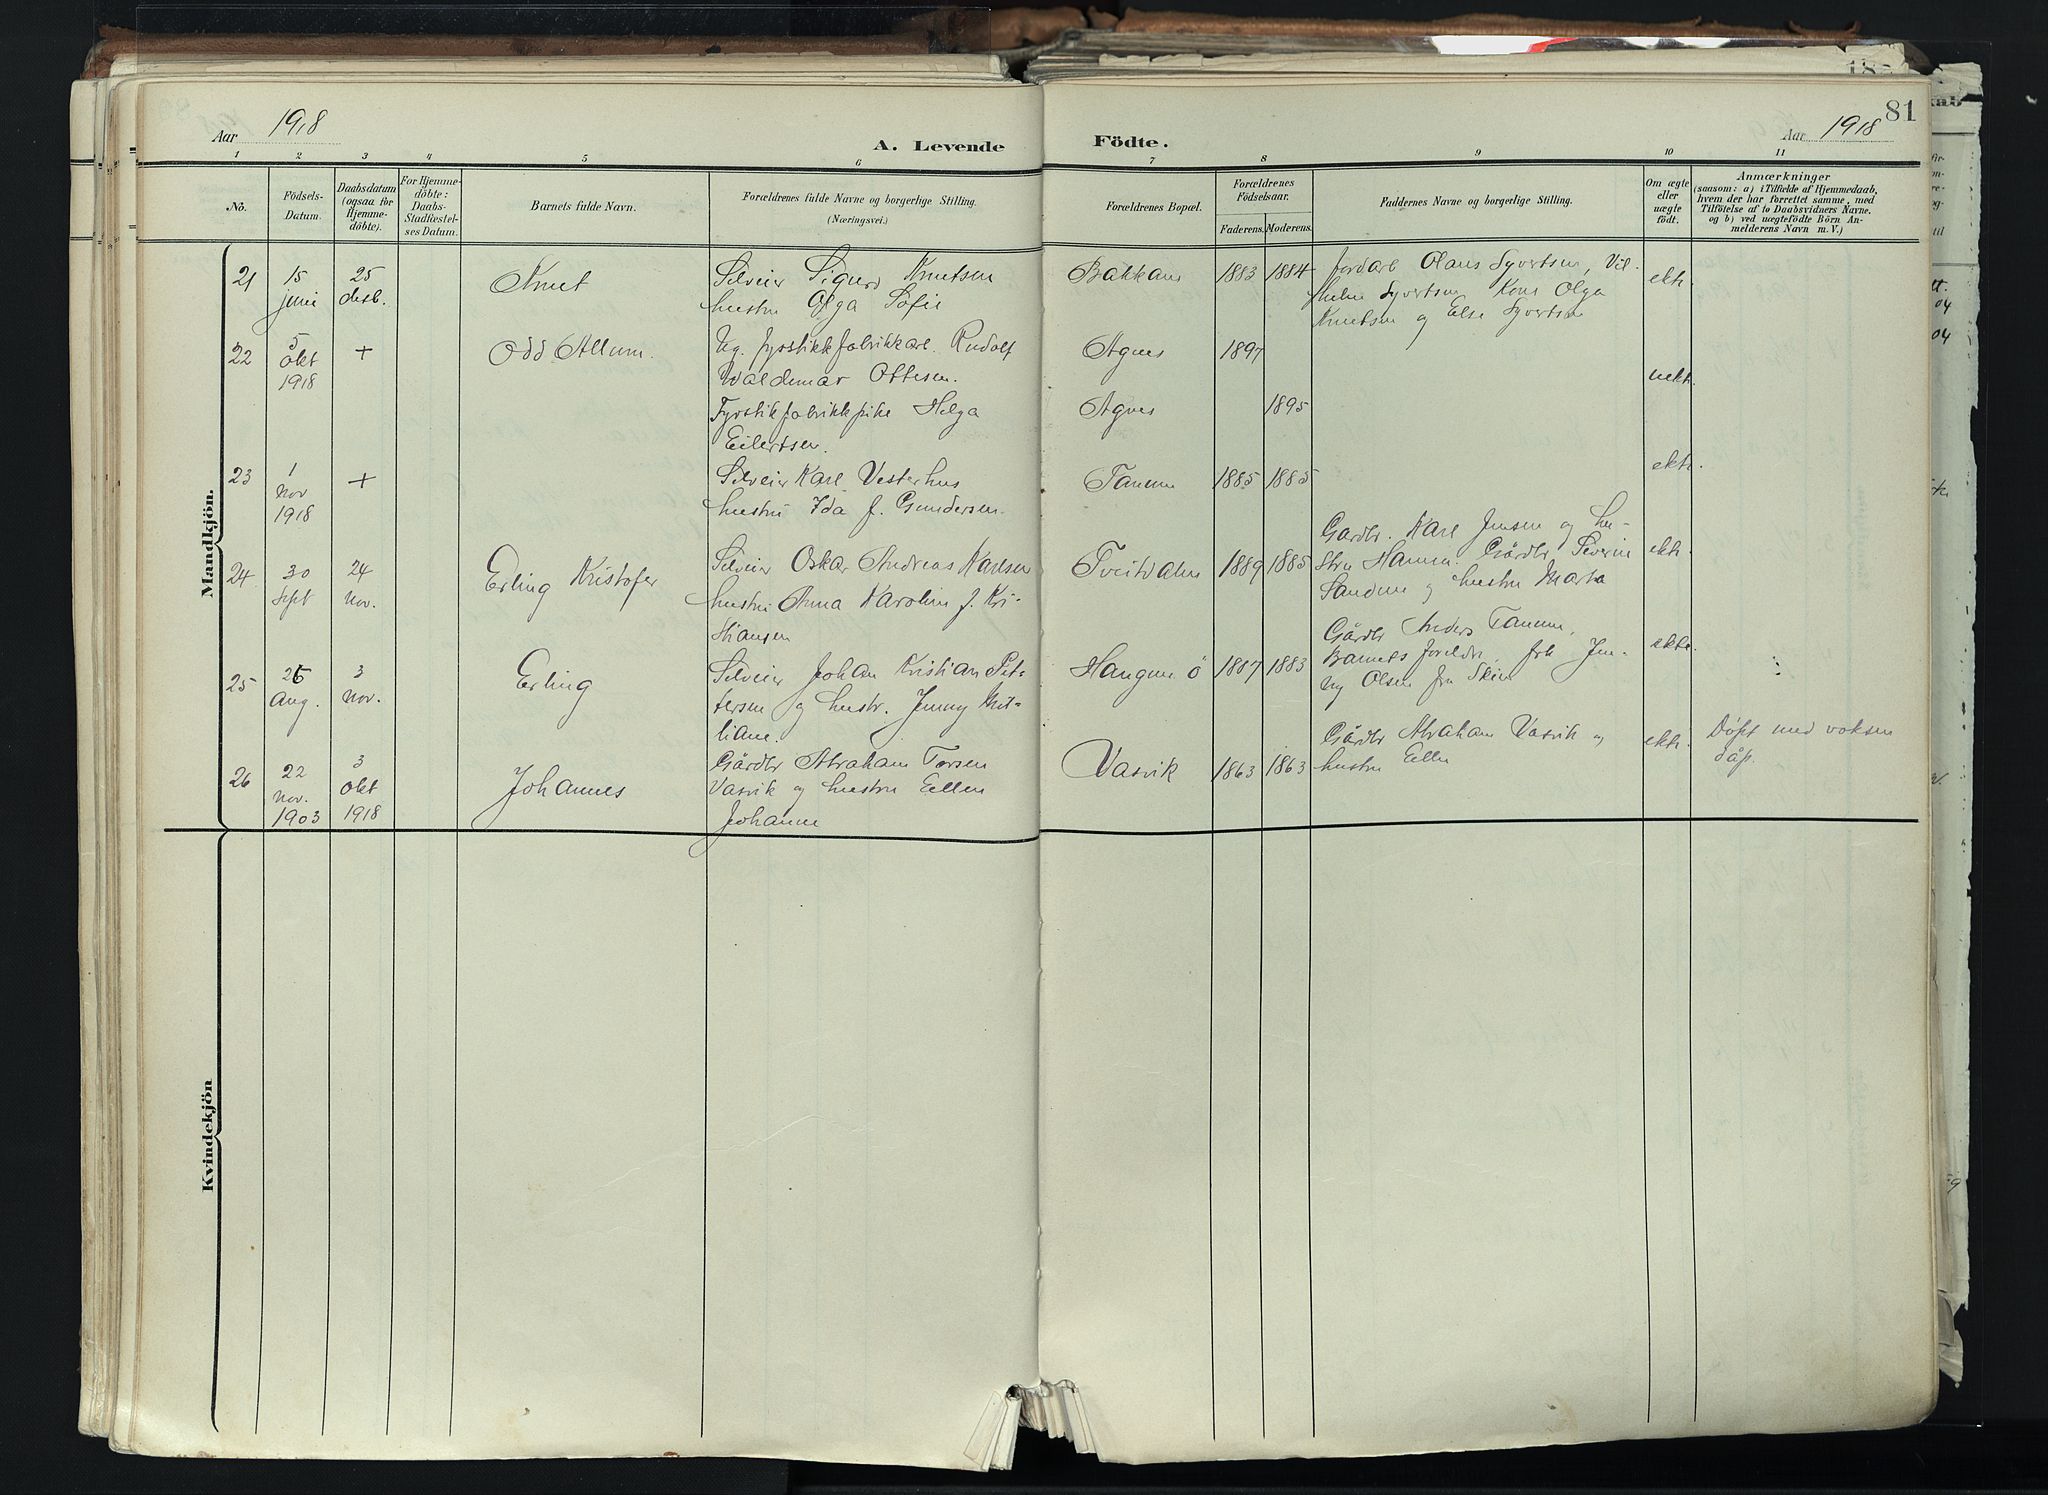 81
Aar 1918
A. Levende Födte.
Aar 1918
1 2 3 4 5 6 7 8 9 10 11
No.
Födsels-
Datum.
Daabsdatum
(ogsaa for
Hjemme-
döbte).
For Hjemme-
döbte:
Daabs-
Stadfæstel-
ses Datum.
Barnets fulde Navn.
Forældrenes fulde Navne og borgerlige Stilling.
(Næringsvei.)
Forældrenes Bopæl.
Forældrenes
Födselsaar.
Faderens. Moderens.
Faddernes Navne og borgerlige Stilling.
Om ægte
eller
uægte
födt.
Anmærkninger
(saasom: a) i Tilfælde af Hjemmedaab,
hvem der har forrettet samme, med
Tilföielse af to Daabsvidners Navne.
og b) ved uægtefödte Börn An-
melderens Navn m. V.)
Mandkjön.
21
15
juni
25
desb.
Knut
Selveier Sigurd Knutsen
hustru Olga Sofie
Bakkane
1883
1884
Olaus Syvertsen, Vil-
helm Syvertsen Kone Olga
Knutsen og Else Syvertsen
ekte
22
5
okt
1918
+
Odd Allum.
Ug. fyrstikkfabrikkarb. Rudolf
Waldemar Ottesen.
Agnes
1897
uekt.
Fyrstikfabrikkpike Helga
Eilertsen.
Agnes
1895
23
1
nov
1918
+
Selveier Karl Vesterhus
hustru Ida f. Gundersen
Tanum
1885
1885
ekte.
24
30
sept
24
nov.
Erling Kristofer
Selveier Oskar Andreas Karlsen
hustru Anna Karoline f. Kri-
stiansen
Tveitdalen
1889
1885
Gårdbr. Karl Jensen og hu-
stru Hanna. Gårdbr. Severin
Sandum og hustru Marta
ekt.
25
26
aug.
3
nov.
Erling
Selveier Johan Kristian Pet-
tersen og hustr. Jenny Mil-
liane.
Hangnu ö
1887
1883
Gårdbr Anders Tanum,
Barnets foreldre, frk Jen-
ny Olsen fra Skien
ekte
26
22
nov.
1903
3
okt
1918
Johannes
Gårdbr Abraham Torsen
Vasvik og hustru Ellen
Johanne
Vasvik
1863
1863
Gårdbr Abraham Vasvik og
hustru Ellen
ekte.
Döpt med voksen
dåp.
Kvindekjön